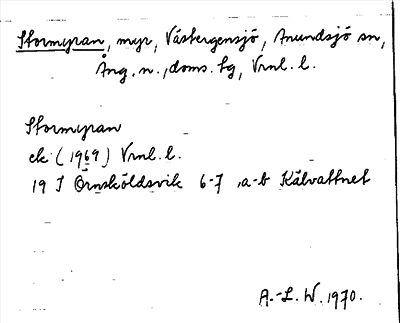 Stormyran, myr, Västergensjö, Anundsjö sn,
Ång. n., doms. tg, Vrnl. l.
Stormyran
ek (1969) Vrnl. l.
19 I Örnsköldsvik 6-7 ,a-b Kälvattnet
A.-L. W. 1970.